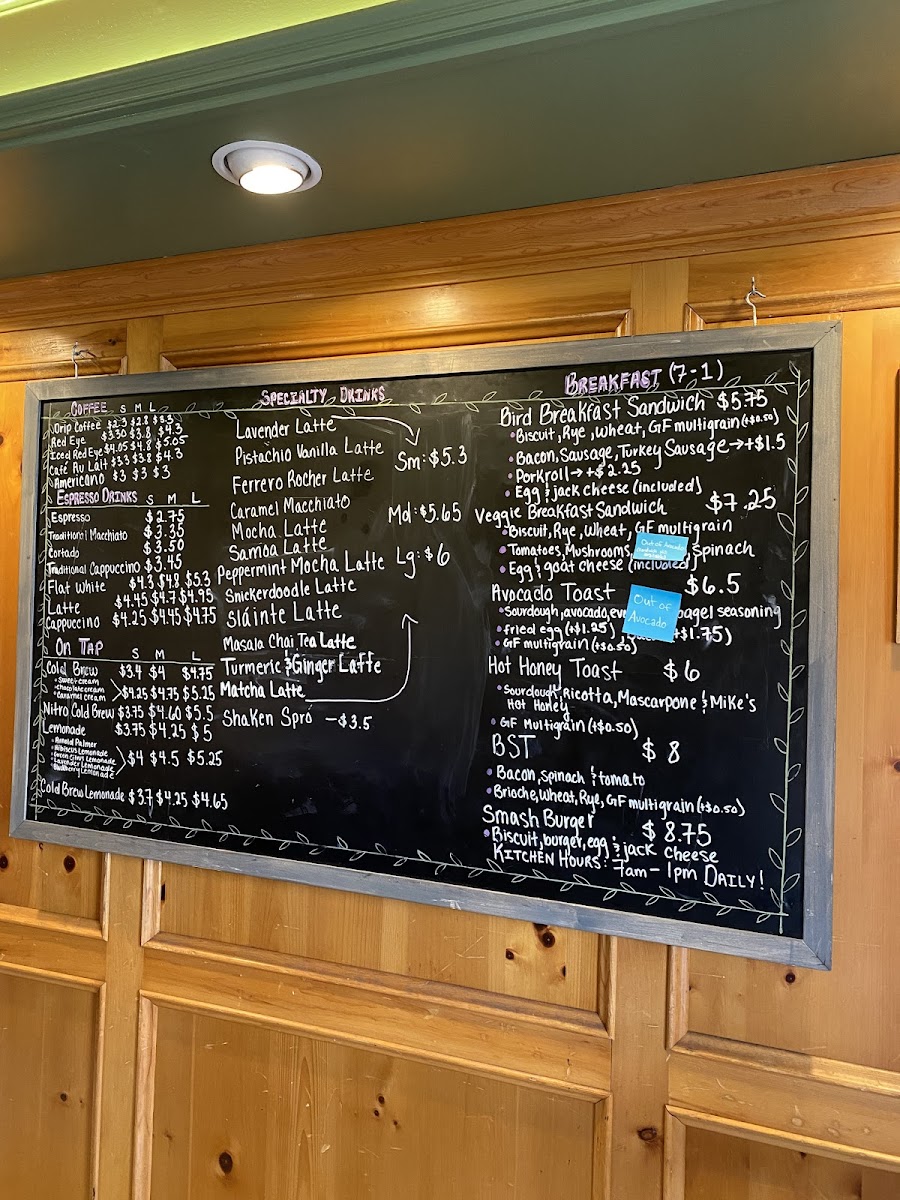 COFFEE S M L
Drip Coffee $2.3 $2.8 $3.3
Red Eye $3.30 $3.8 $4.3
Iced Red Eye $4.05 $4.8 $5.05
Café Au Lait $3.3 $3.8 $4.3
Americano $3 $3 $3
ESPRESSO DRINKS S M L
Espresso $2.75
Traditional Macchiato $3.35
Cortado $3.50
Traditional Cappuccino $3.45
Flat White $4.3 $4.8 $5.3
Latte $4.45 $4.7 $4.95
Cappuccino $4.25 $4.45 $4.75
ON TAP S M L
Cold Brew $3.4 $4 $4.75
• Sweet cream
• chocolate cream
• caramel cream
$4.25 $4.75 $5.25
Nitro Cold Brew $3.75 $4.60 $5.5
Lemonade $3.75 $4.25 $5
• Arnold Palmer
• Hibiscus Lemonade
• Lavender Lemonade
• Blueberry Lemonade
$4 $4.5 $5.25
Cold Brew Lemonade $3.7 $4.25 $4.65
SPECIALTY DRINKS
Lavender Latte
Pistachio Vanilla Latte
Ferrero Rocher Latte
Caramel Macchiato
Mocha Latte
Samoa Latte
Peppermint Mocha Latte
Snickerdoodle Latte
Sláinte Latte
Masala Chai Tea Latte
Turmeric & Ginger Laffe
Matcha Latte
Shaken Spró —$3.5
Sm: $5.3
Md: $5.65
Lg: $6
BREAKFAST (7-1)
Bird Breakfast Sandwich $5.75
• Biscuit, Rye, Wheat, GF multigrain (+$0.50)
• Bacon, Sausage, Turkey Sausage → +$1.5
• Porkroll → +$2.25
• Egg & jack cheese (included)
Veggie Breakfast Sandwich $7.25
• Biscuit, Rye, Wheat, GF multigrain
• Tomatoes, Mushrooms, Spinach
Out of Avocado
• Egg & goat cheese (included)
Avocado Toast $6.5
• Sourdough, avocado, bagel seasoning
• fried egg (+$1.25) +$1.75)
Out of
Avocado
• GF multigrain (+$0.50)
Hot Honey Toast $6
• Sourdough, Ricotta, Mascarpone & Mike's
Hot Honey
• GF Multigrain (+$0.50)
BST $8
• Bacon, Spinach & tomato
• Brioche, Wheat, Rye, GF multigrain (+$0.50)
Smash Burger $8.75
• Biscuit, burger, egg & jack cheese
KITCHEN HOURS: 7am - 1pm DAILY!